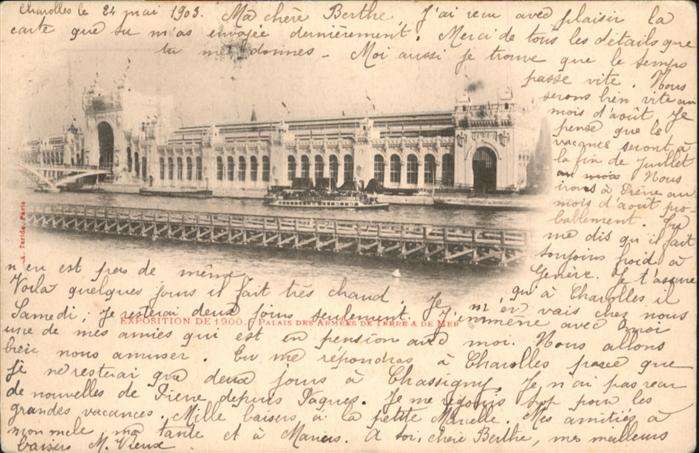 Charolles le 24 mai 1903. Ma chère Berthe, J'ai reçu avec plaisir la
carte que tu m'as envoyée dernièrement. Merci de tous les détails que
tu me donnes - Moi aussi je trouve que le temps
passe vite. Nous
serons bien vite au
mois d'août. Je
pense que les
vacances seront à
la fin de juillet
Nous
irons à Pierre au
mois d'août pro
bablement. Tu
me dis qu'il fait
toujours froid à
Genève. Je t'assure
qu'à Charolles il
n'en est pas de même
Voilà quelques jours il fait très chaud. Je m'en vais chez nous
Samedi; Je resterai deux jours seulement. J'emmène avec moi
EXPOSITION DE 1900. PALAIS DES ARMÉES DE TERRE & DE MER
une de mes amies qui est en pension avec moi. Nous allons
bien nous amuser. Tu me répondras à Charolles parce que
je ne resterai que deux jours à Chassigny. Je n'ai pas reçu
de nouvelles de Pierre depuis Pâques. Je me réjouis pour les
grandes vacances. Mille baisers à la petite Marcelle. Mes amitiés à
mon oncle, ma tante et à A toi, chère Berthe, mes meilleurs
baisers M. Vieux
A. Taride, Paris